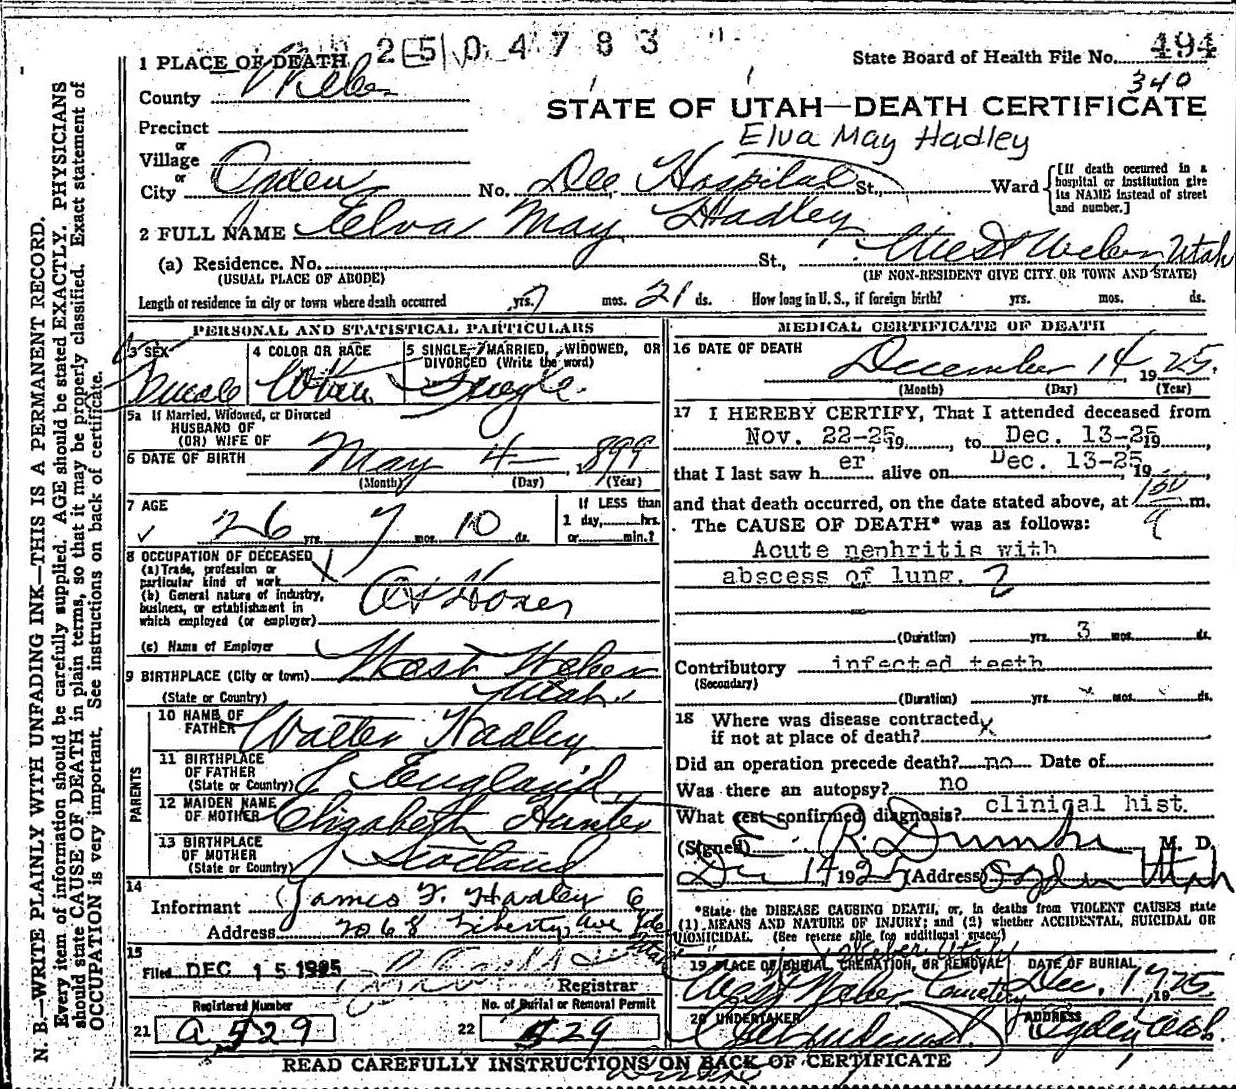 2504783
1 PLACE OF DEATH
State Board of Health File No. 494
340
County Weber
STATE OF UTAH—DEATH CERTIFICATE
Precinct
Elva May Hadley
or
Village
or
City Ogden No. Dee Hospital St., Ward [If death occurred in a hospital or institution give its NAME instead of street and number.]
2 FULL NAME Elva May Hadley
(a) Residence. No. St., West Weber Utah
(USUAL PLACE OF ABODE) (IF NON-RESIDENT GIVE CITY OR TOWN AND STATE)
Length of residence in city or town where death occurred yrs. mos. 21 ds. How long in U. S., if foreign birth? yrs. mos. ds.
PERSONAL AND STATISTICAL PARTICULARS
3 SEX 4 COLOR OR RACE 5 SINGLE, MARRIED, WIDOWED, OR DIVORCED (Write the word)
Female White Single
5a If Married, Widowed, or Divorced
HUSBAND OF
(OR) WIFE OF
6 DATE OF BIRTH May 4 1899
(Month) (Day) (Year)
7 AGE If LESS than
26 yrs. 7 mos. 10 ds. 1 day, hrs. or min.?
8 OCCUPATION OF DECEASED
(a) Trade, profession or
particular kind of work
(b) General nature of industry,
business, or establishment in
which employed (or employer) At Home
(c) Name of Employer
9 BIRTHPLACE (City or town) West Weber
(State or Country) Utah
PARENTS
10 NAME OF FATHER Walter Hadley
11 BIRTHPLACE OF FATHER (State or Country) England
12 MAIDEN NAME OF MOTHER Elizabeth Hunter
13 BIRTHPLACE OF MOTHER (State or Country) Scotland
14
Informant James F. Hadley
Address 2068 Liberty Ave
15
Filed DEC 15 1925
Registrar
Registered Number No. of Burial or Removal Permit
21 a 529 22 529
MEDICAL CERTIFICATE OF DEATH
16 DATE OF DEATH
December 14 1925.
(Month) (Day) (Year)
17 I HEREBY CERTIFY, That I attended deceased from
Nov. 22-25, 19 , to Dec. 13-25, 19
that I last saw h er alive on Dec. 13-25, 19
and that death occurred, on the date stated above, at m.
The CAUSE OF DEATH* was as follows:
Acute nephritis with
abscess of lung.
(Duration) yrs. 3 mos. ds.
Contributory infected teeth
(Secondary)
(Duration) yrs. mos. ds.
18 Where was disease contracted
if not at place of death? x
Did an operation precede death? no Date of
Was there an autopsy? no
What test confirmed diagnosis? clinical hist.
(Signed) E. R. Dumke M. D.
Dec 14 1925 (Address) Ogden Utah
*State the DISEASE CAUSING DEATH, or, in deaths from VIOLENT CAUSES state
(1) MEANS AND NATURE OF INJURY; and (2) whether ACCIDENTAL, SUICIDAL OR
HOMICIDAL. (See reverse side for additional space.)
19 PLACE OF BURIAL, CREMATION, OR REMOVAL DATE OF BURIAL
West Weber Cemetery Dec. 17 1925
20 UNDERTAKER ADDRESS
Ogden Utah.
READ CAREFULLY INSTRUCTIONS ON BACK OF CERTIFICATE
N. B.—WRITE PLAINLY WITH UNFADING INK—THIS IS A PERMANENT RECORD.
Every item of information should be carefully supplied. AGE should be stated EXACTLY. PHYSICIANS
should state CAUSE OF DEATH in plain terms, so that it may be properly classified. Exact statement of
OCCUPATION is very important. See instructions on back of certificate.